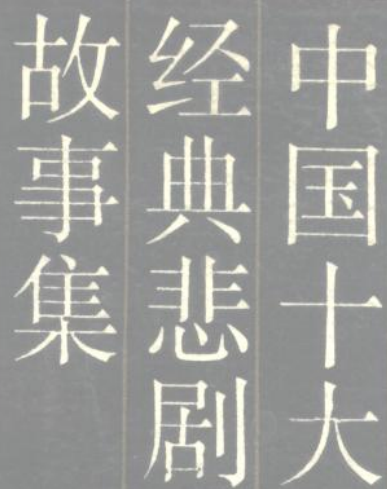 中国十大
经典悲剧
故事集